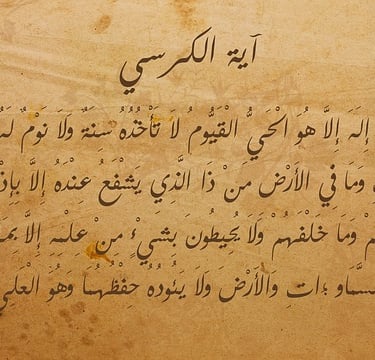 آية الكرسي
إِلَهَ إِلَّا هُوَ الْحَيُّ الْقَيُّومُ لَا تَأْخُذُهُ سِنَةٌ وَلَا نَوْمٌ
وَمَا فِي الْأَرْضِ مَنْ ذَا الَّذِي يَشْفَعُ عِنْدَهُ إِلَّا
وَمَا خَلْفَهُمْ وَلَا يُحِيطُونَ بِشَيْءٍ مِنْ عِلْمِهِ إِلَّا
وَالْأَرْضَ وَلَا يَئُودُهُ حِفْظُهُمَا وَهُوَ